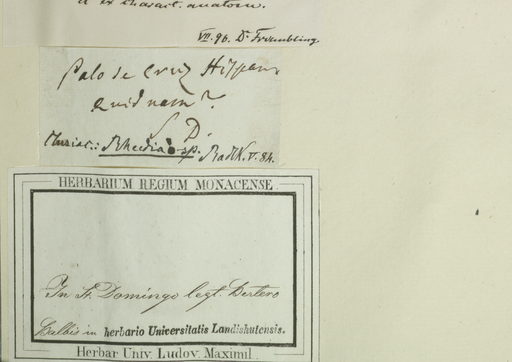 e charact. anatom.
VII. 96. Dr Fraembling
Palo de Cruz Hispan
quid nam?
S. D.
Rheedia sp. Radlk. V. 84.
HERBARIUM REGIUM MONACENSE
In St. Domingo legt. Bertero
Balbis in herbario Universitatis Landishutensis.
Herbar Univ. Ludov. Maximil.